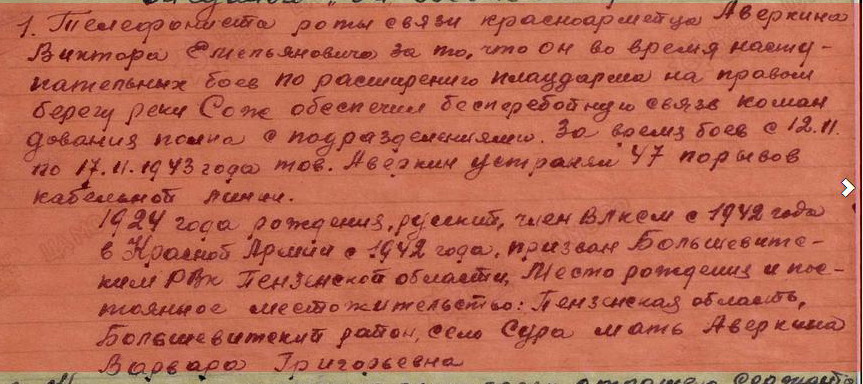 1. Телефониста роты связи красноармейца Аверкина
Виктора Емельяновича за то, что он во время насту-
пательных боев по расширению плацдарма на правом
берегу реки Сож обеспечил бесперебойную связь коман
дования полка с подразделениями. За время боев с 12.11.
по 17.11.1943 года тов. Аверкин устранил 47 порывов
кабельной линии.
1924 года рождения, русский, член ВЛКСМ с 1942 года
в Красной Армии с 1942 года, призван Большевитс-
ким РВК Пензенской области, Место рождения и пос-
тоянное местожительство: Пензенская область,
Большевитский район, село Сура мать Аверкина
Варвара Григорьевна